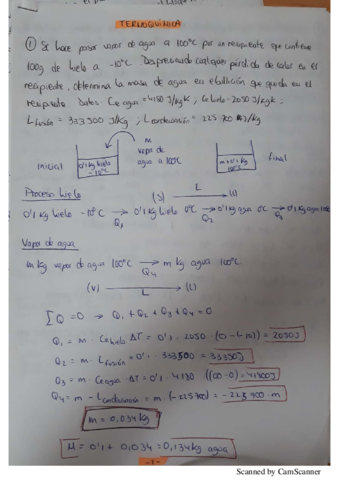 TERMOQUÍMICA
① Se hace pasar vapor de agua a 100ºC por un recipiente que contiene
100g de hielo a -10ºC. Despreciando cualquier pérdida de calor en el
recipiente, determina la masa de agua en que queda en el
recipiente. Datos: Ce agua = J/kgK; Ce hielo = 2050 J/kgK;
L fusión = 333500 J/kg; L J/kg
m
vapor de
agua a 100ºC
inicial
0'1 kg hielo
-10ºC
m+0'1 kg
100ºC
final
Proceso hielo
(s) L (l)
0'1 kg hielo -10ºC → Q₁ 0'1 kg hielo 0ºC → Q₂ 0'1 kg agua 0ºC → Q₃ 0'1 kg agua 100ºC
Vapor de agua
m kg vapor de agua 100ºC → Q₄ m kg agua 100ºC
(v) L (l)
ΣQ = 0 → Q₁ + Q₂ + Q₃ + Q₄ = 0
Q₁ = m · Ce hielo ΔT = 0'1 · 2050 = 2050J
Q₂ = m · L fusión = 0'1 · 333500 = 33350J
Q₃ = m · Ce agua · ΔT = 0'1 · (100-0) =
Q₄ = m · =
m = 0,034 kg
M = 0'1 + 0,034 = 0,134 kg agua
-1-
Scanned by CamScanner